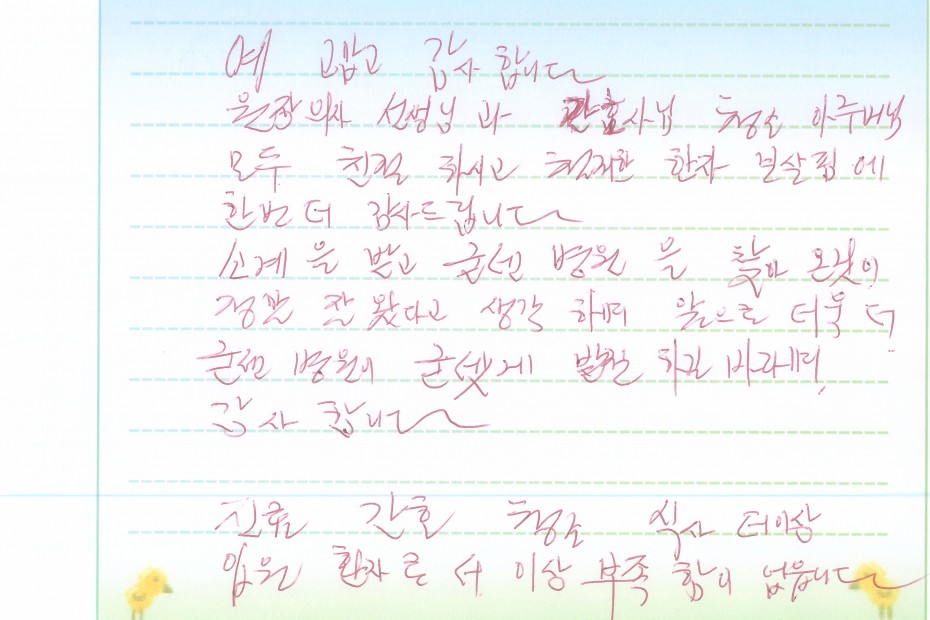 예 고맙고 감사 합니다
원장 의사 선생님 과 간호사님 청소 아주머님
모두 친절 하시고 철저한 환자 보살핌 에
한번 더 감사드립니다
소계 을 받고 굳센 병원 을 찾아 온것이
정말 잘 왔다고 생각 하며 앞으로 더욱 더
굳센 병원이 굳셋게 발전 하길 바라며,
감사 합니다
진료 간호 청소 식사 더이상
입원 환자로 서 이상 부족 함이 없읍니다